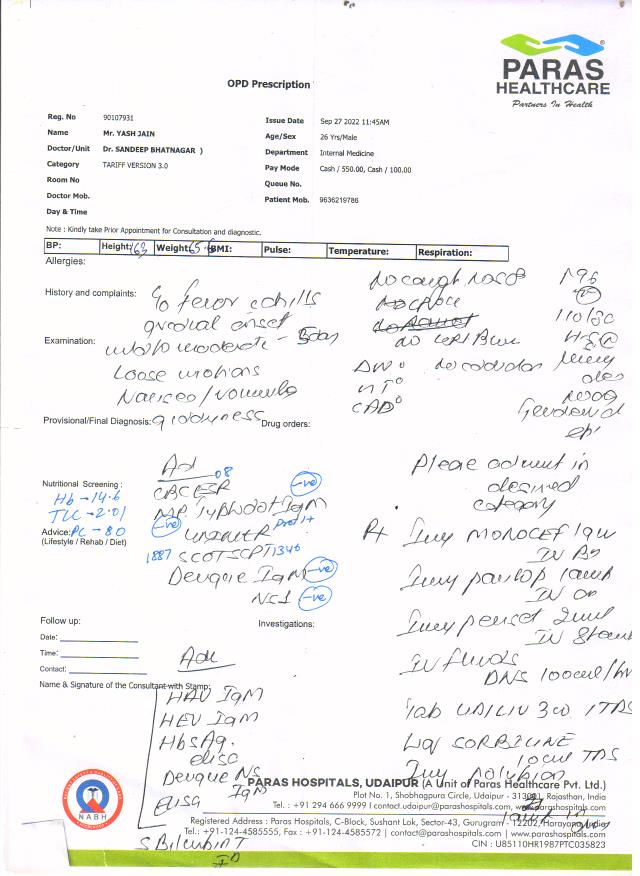 PARAS
HEALTHCARE
Partners In Health
OPD Prescription
Reg. No 90107931
Issue Date Sep 27 2022 11:45AM
Name Mr. YASH JAIN
Age/Sex 26 Yrs/Male
Doctor/Unit Dr. SANDEEP BHATNAGAR )
Department Internal Medicine
Category TARIFF VERSION 3.0
Pay Mode Cash / 550.00, Cash / 100.00
Room No
Queue No.
Doctor Mob.
Patient Mob. 9636219786
Day & Time
Note : Kindly take Prior Appointment for Consultation and diagnostic.
BP: Height: 163 Weight: 65. BMI: Pulse: Temperature: Respiration:
Allergies:
no cough P 96
History and complaints: fever chills
110/80
gradual onset
Examination: moderate - 5 days
Loose motions
HT°
Nausea / vomiting
CAD°
Provisional/Final Diagnosis: giddyness Drug orders:
Please admit in
desired
category
Ad
08
Nutritional Screening : CBC ESR -ve
Hb - 14.6
MP. Typhidot IgM
TLC - 2.01
-ve Urine R Prot 1+
Advice: PC - 80
(Lifestyle / Rehab / Diet)
1887 SCOT SCPT 1346
Dengue IgM -ve
NS1 -ve
Rx Inj MONOCEF 1gm
IN BD
Inj pantop 1amp
IN OD
Inj 2ml
IN
IV fluids
DNS 100ml/hr
Tab UDILIV 300 1 TDS
Liq SORBILINE
10ml TDS
Inj
Follow up:
Investigations:
Date:
Time:
Contact:
Adv
Name & Signature of the Consultant with Stamp:
HAV IgM
HEV IgM
HbsAg.
elisa
Dengue NS
IgM
Elisa
S Bilirubin T
D
NABH
PARAS HOSPITALS, UDAIPUR (A Unit of Paras Healthcare Pvt. Ltd.)
Plot No. 1, Shobhagpura Circle, Udaipur - 313001, Rajasthan, India
Tel. : +91 294 666 9999 | contact.udaipur@parashospitals.com, www.parashospitals.com
Registered Address : Paras Hospitals, C-Block, Sushant Lok, Sector-43, Gurugram - 12202, Harayana, India
Tel.: +91-124-4585555, Fax : +91-124-4585572 | contact@parashospitals.com | www.parashospitals.com
CIN : U85110HR1987PTC035823